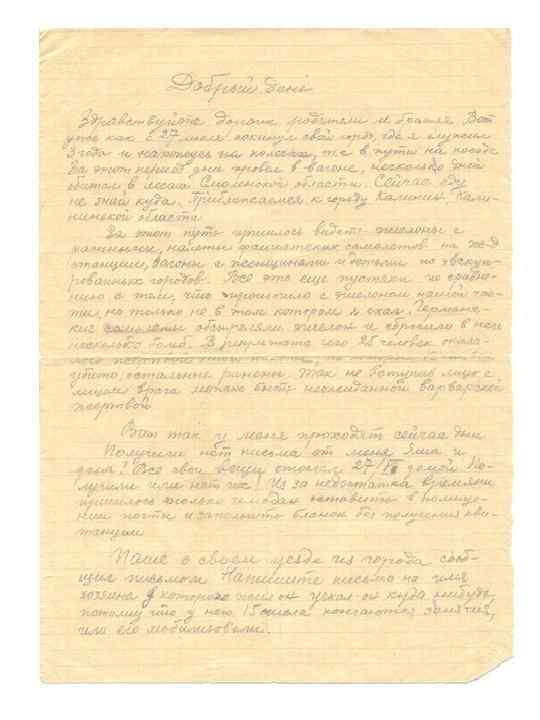 Добрый день
Здравствуйте дорогие родители и братья. Вот
уже как с 27 июля покинул свой город, где я служил
3 года и нахожусь на колесах, т.е. в пути на поезде
За этот период дни провел в вагоне, несколько дней
обитал в лесах Смоленской области. Сейчас еду
не знаю куда. Приближаемся к городу Калинин, Кали-
нинской области
За этот путь пришлось видеть эшелоны с
раненными, налеты фашистских самолетов на ж-д
станции, вагоны с женщинами и детьми из эвакуи-
рованных городов. Все это еще пустяки по сравне-
нию с тем, что произошло с эшелоном нашей час-
ти, но только не в том котором я ехал. Германс-
кие самолеты обстреляли эшелон и сбросили в него
несколько бомб. В результате чего 25 человек оказа-
лось
убито, остальные ранены. Так не вступив лицо с
лицом врага можно быть неожиданной варварской
жертвой
Вот так у меня проходят сейчас дни
Получили нет письма от меня Яша и
дома? Все свои вещи отослал 27/VII домой По-
лучили или нет их! Из за недостатка времени
пришлось только чемодан оставить в помеще-
нии почты и заполнить бланок без получения кви-
танции
Паше о своем уезде из города сооб-
щил письмом Напишите письмо на имя
хозяина у которого жил он уехал он куда нибудь,
потому что у него 15 числа кончаются занятия,
или его мобилизовали.